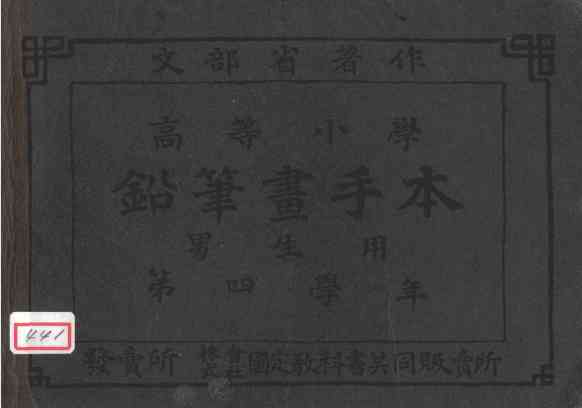 文部省著作
高等小學
鉛筆畫手本
男生用
第四學年
發賣所 株式會社國定教科書共同販賣所
441